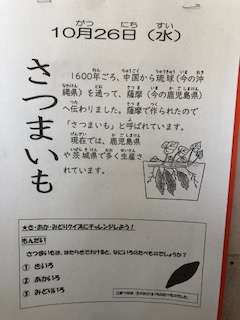 10月26日（水）
さつまいも
1600年ごろ、中国から琉球（今の沖
縄県）を通って、薩摩（今の鹿児島県）
へ伝わりました。薩摩で作られたので
「さつまいも」と呼ばれています。
現在では、鹿児島県
や茨城県で多く生産さ
れています。
★き・あか・みどりクイズにチャレンジしよう！
もんだい
さつまいもは、はたらきでわけると、なにいろのたべものでしょうか？
① きいろ
② あかいろ
③ みどりいろ